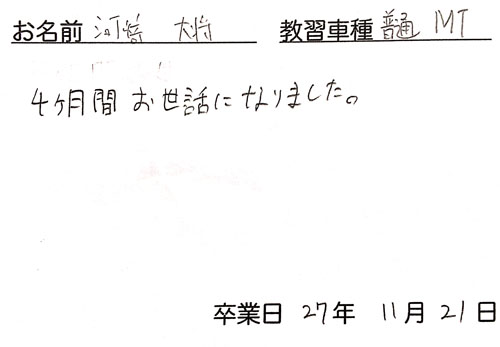 お名前 河嵜 大将 教習車種 普通 MT
4ヶ月間 お世話になりました。
卒業日 27年 11月 21日